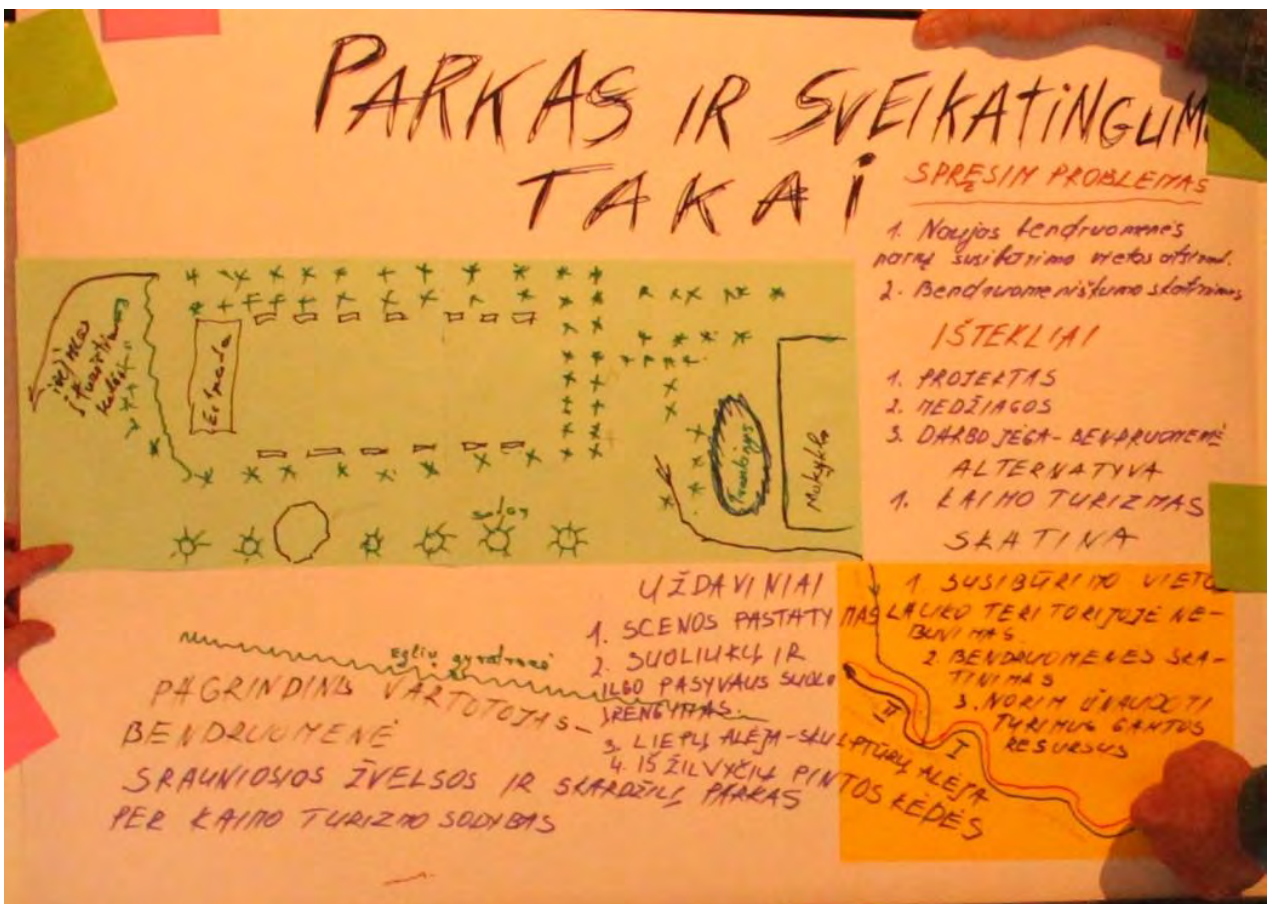 PARKAS IR SVEIKATINGUM
TAKAI
SPRĘSIM PROBLEMAS
1. Naujos bendruomenės
narių susibūrimo vietos atsirad.
2. Bendruomeniškumo skatinimas
IŠTEKLIAI
1. PROJEKTAS
2. MEDŽIAGOS
3. DARBO JĖGA - BENDRUOMENĖ
ALTERNATYVA
1. KAIMO TURIZMAS
SKATINA
1. SUSIBŪRIMO VIETO
LAUKO TERITORIJOJE NE-
BUVIMAS.
2. BENDRUOMENĖS SKA-
TINIMAS
3. NORIM IŠNAUDOTI
TURIMUS GAMTOS
RESURSUS
į turistinius
Estrada
sodas
Treniruoklys
Mokykla
Eglių gyvatvorė
UŽDAVINIAI
1. SCENOS PASTATYMAS
2. SUOLIUKŲ IR
ILGO PASYVAUS SUOLO
ĮRENGYMAS.
3. LIEPŲ ALĖJA - SKULPTŪRŲ ALĖJA
4. IŠ ŽILVYČIŲ PINTOS KĖDĖS
PAGRINDINIS VARTOTOJAS -
BENDRUOMENĖ
SRAUNIOSIOS ŽVELSOS IR SKARDŽILĮ PARKAS
PER KAIMO TURIZMO SODYBAS
II
I